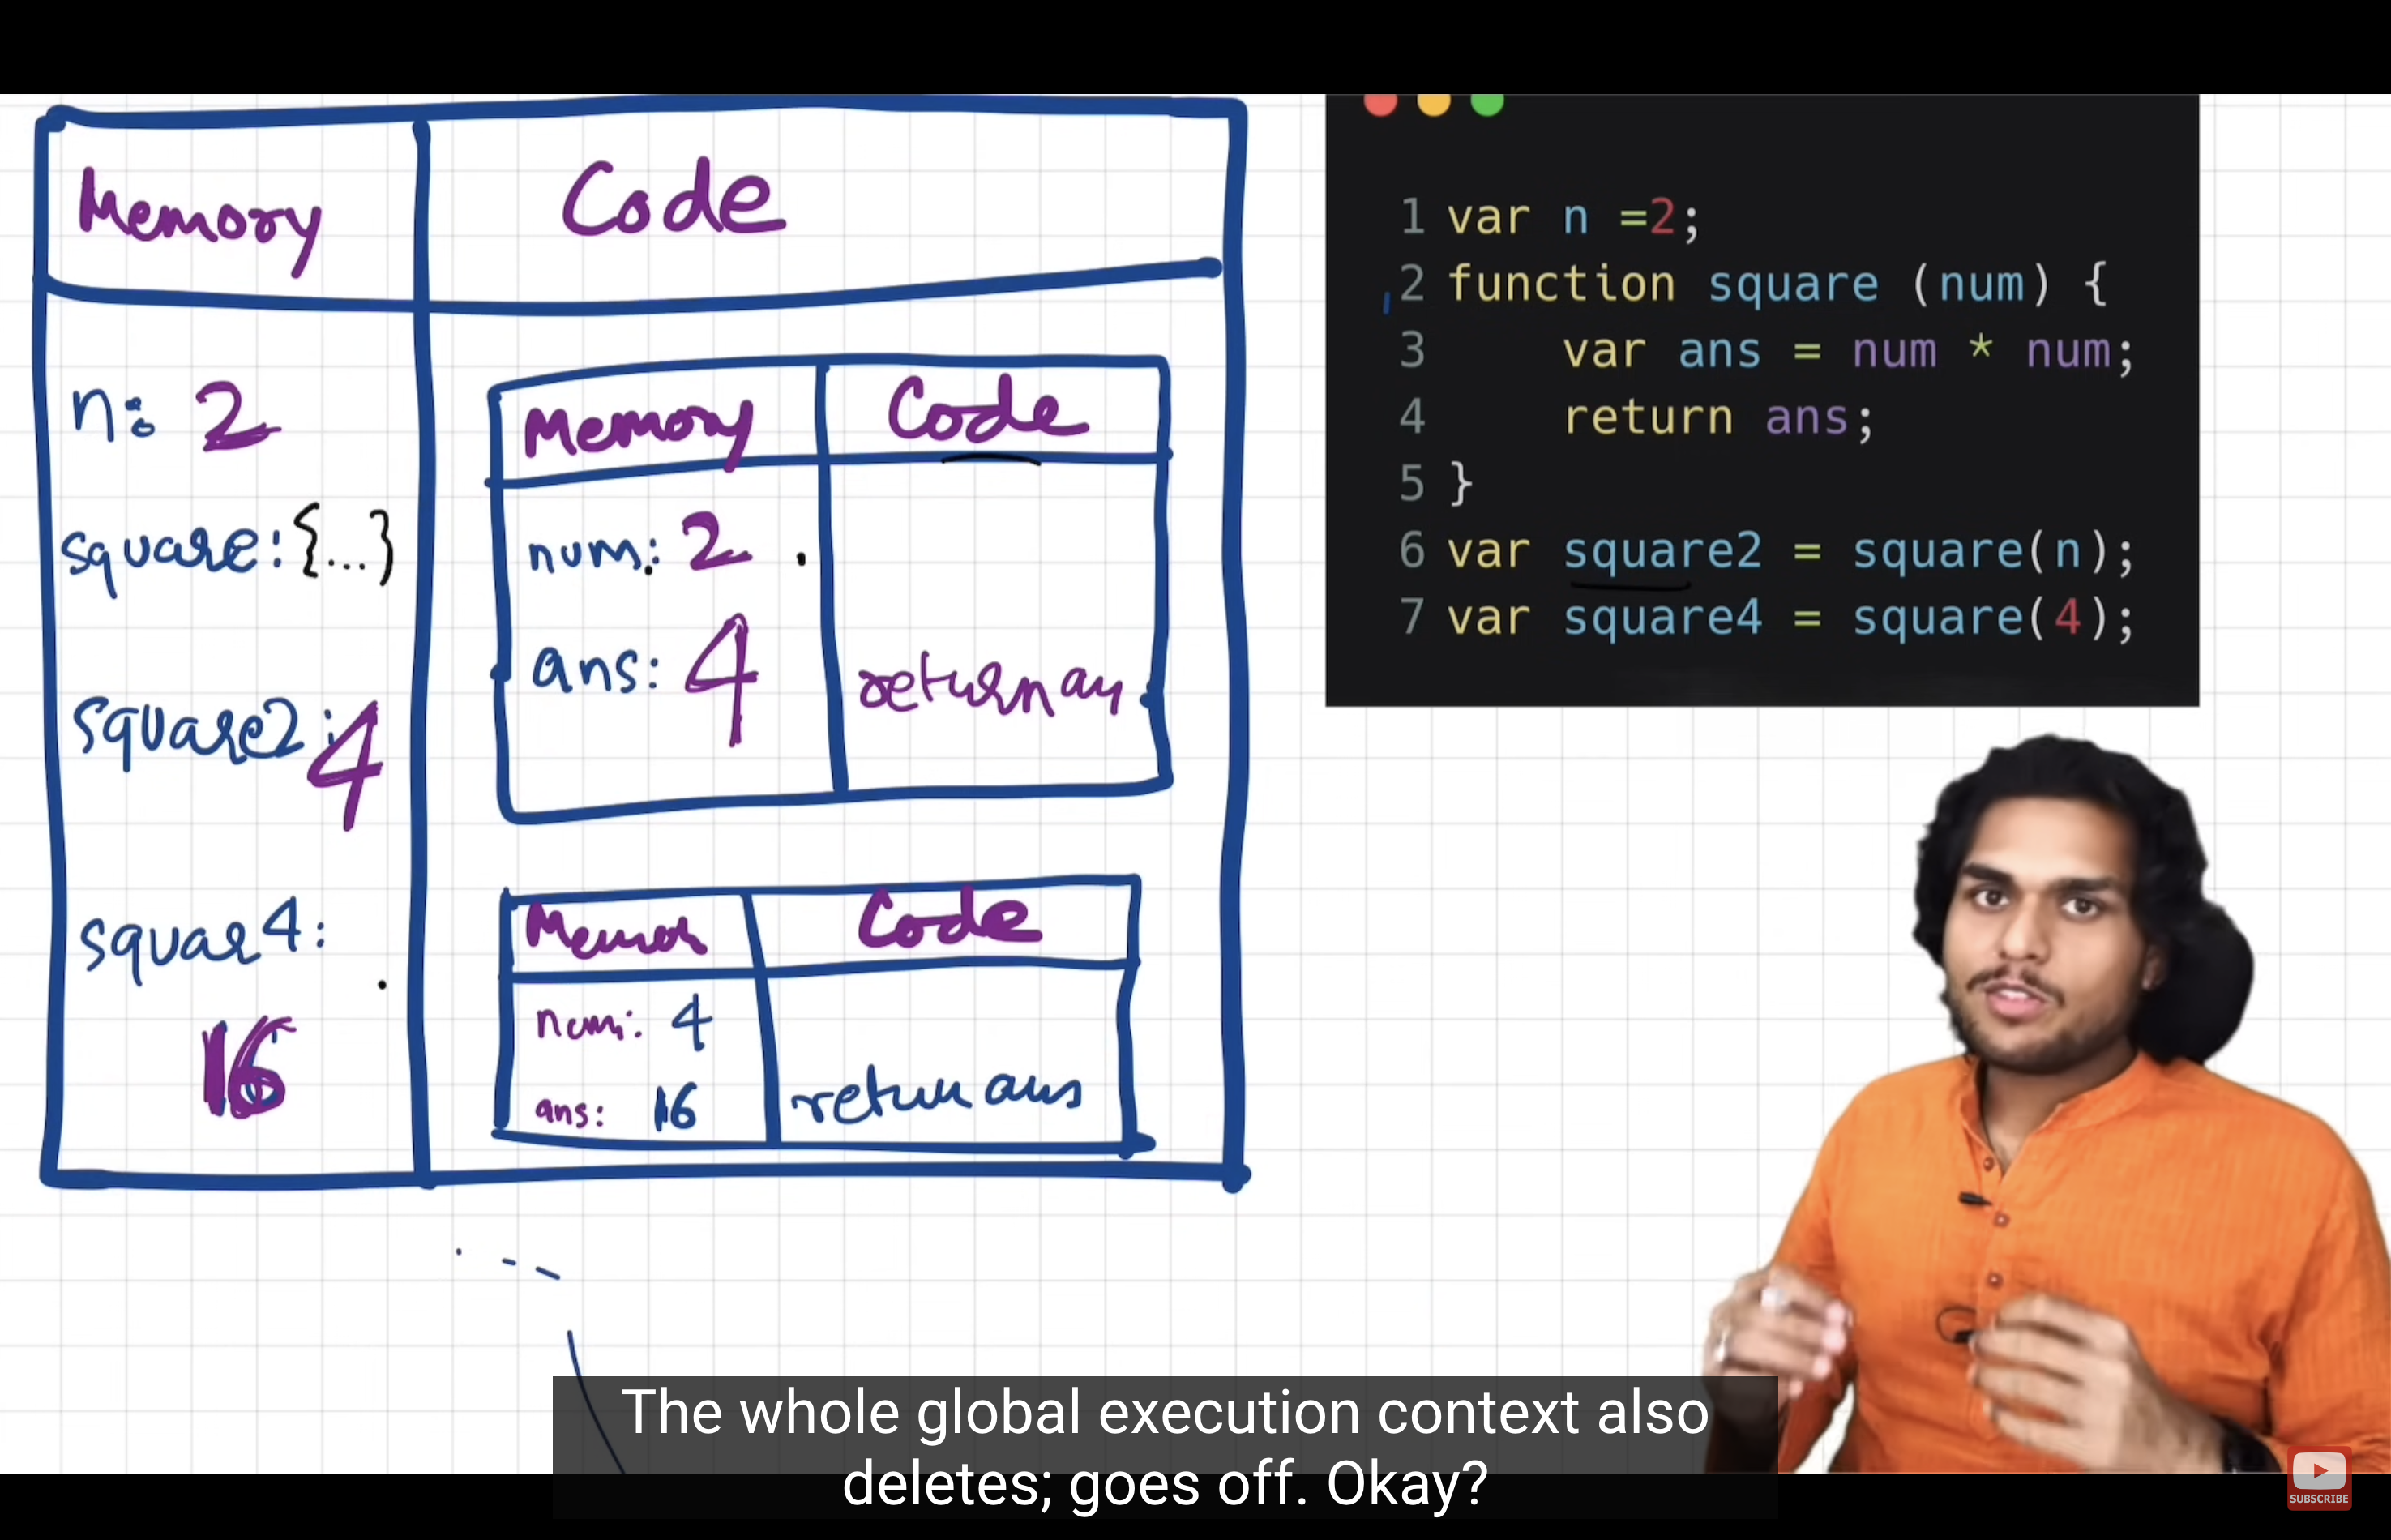 Memory
Code
n: 2
square: {...}
square2: 4
squar4:
16
Memory
Code
num: 2
ans: 4
return an
Code
num: 4
ans: 16
return ans
1 var n =2;
2 function square (num) {
3 var ans = num * num;
4 return ans;
5 }
6 var square2 = square(n);
7 var square4 = square(4);
The whole global execution context also
deletes; goes off. Okay?
SUBSCRIBE